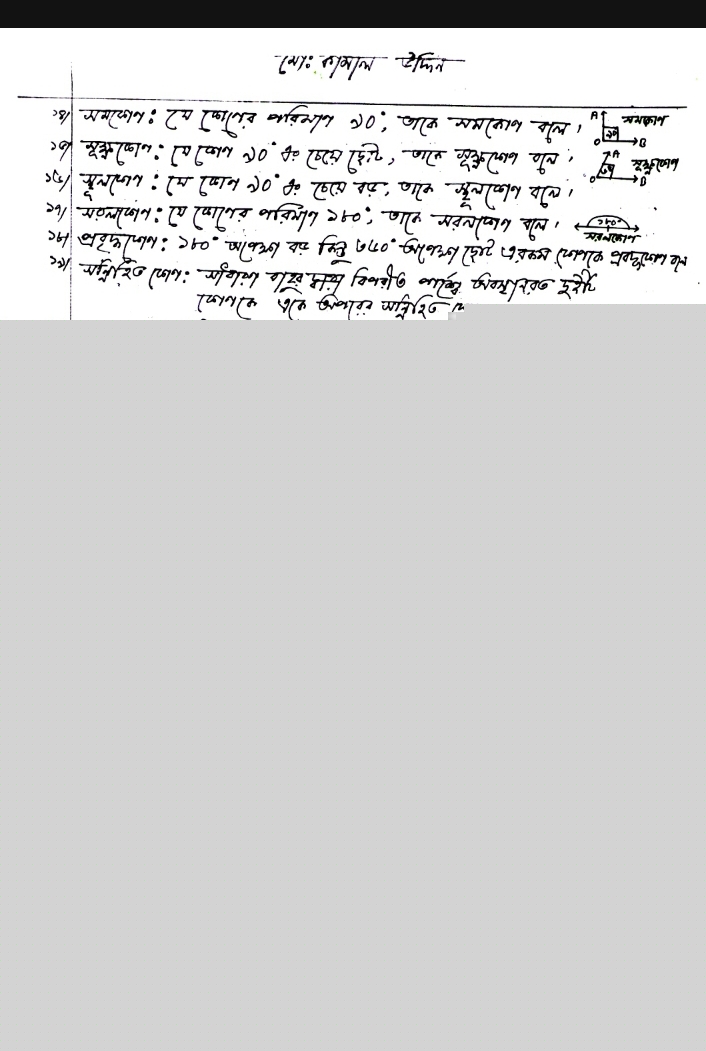 মোঃ কামাল উদ্দিন
১৪/ সমকোণ: যে কোণের পরিমাণ ৯০°, তাকে সমকোণ বলে।
A সমকোণ
৯০°
O B
১৫/ সূক্ষ্মকোণ: যে কোণ ৯০° এর চেয়ে ছোট, তাকে সূক্ষ্মকোণ বলে।
A সূক্ষ্মকোণ
O B
১৬/ স্থূলকোণ: যে কোণ ৯০° এর চেয়ে বড়, তাকে স্থূলকোণ বলে।
১৭/ সরলকোণ: যে কোণের পরিমাণ ১৮০°, তাকে সরলকোণ বলে।
১৮০°
সরলকোণ
১৮/ প্রবৃদ্ধকোণ: ১৮০° অপেক্ষা বড় কিন্তু ৩৬০° অপেক্ষা ছোট এরকম কোণকে প্রবৃদ্ধকোণ বলে
১৯/ সন্নিহিত কোণ: সাধারণ বাহুর দ্বারা বিপরীত পার্শ্বে অবস্থানরত দুইটি
কোণকে একে অপরের সন্নিহিত